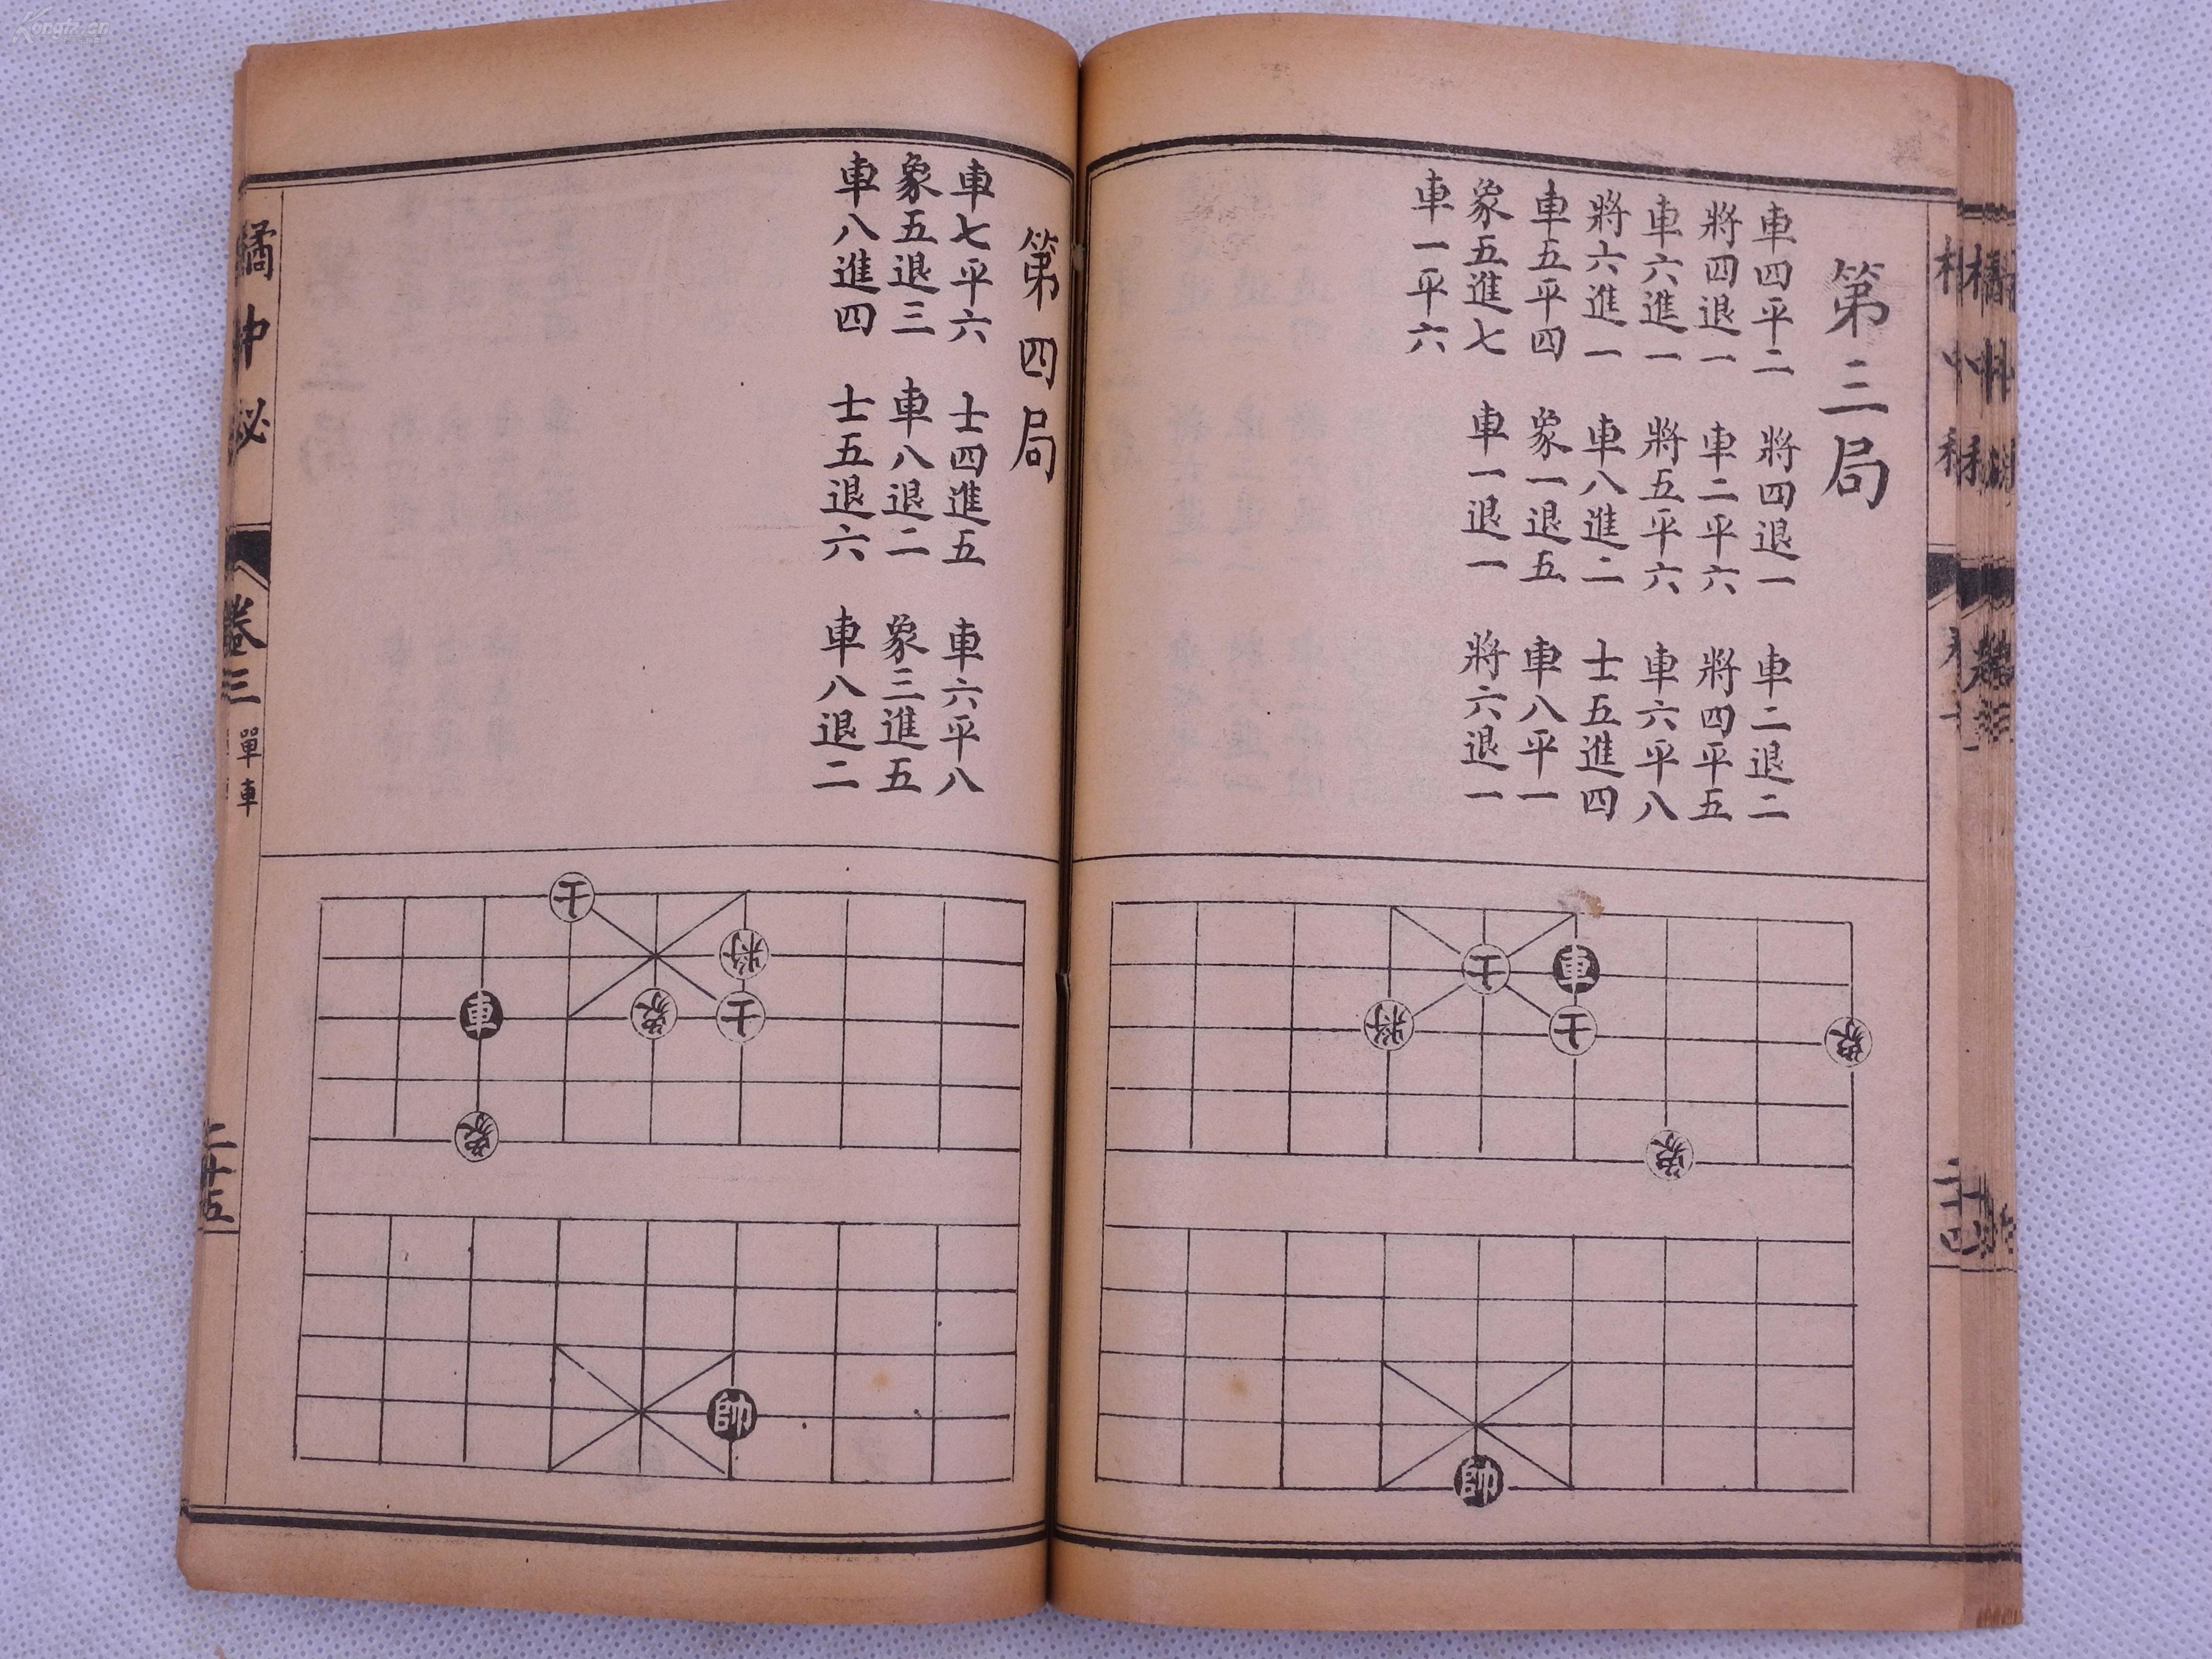 Kongfz.cn
第三局
車四平二 將四退一 車二退二
將四退一 車二平六 將四平五
車六進一 將五平六 車六平八
將六進一 車八進二 士五進四
車五平四 象一退五 車八平一
象五進七 車一退一 將六退一
車一平六
士
車
將
士
象
象
帥
第四局
車七平六 士四進五 車六平八
象五退三 車八退二 象三進五
車八進四 士五退六 車八退二
士
將
車
象
士
象
帥
橘中秘
卷三
單車
二十五